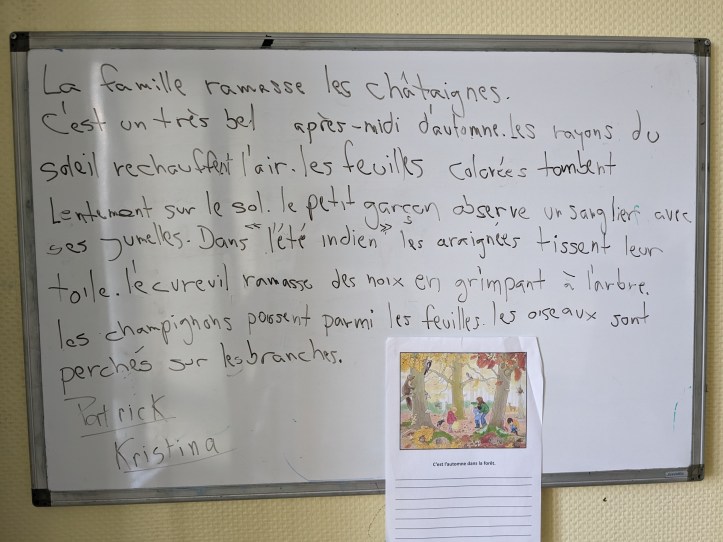 La famille ramasse les châtaignes.
C'est un très bel après-midi d'automne. les rayons du
soleil rechauffent l'air. les feuilles colorées tombent
Lentement sur le sol. le petit garçon observe un sanglier avec
ses jumelles. Dans "l'été indien" les araignées tissent leur
toile. l'écureuil ramasse des noix en grimpant à l'arbre.
les champignons poussent parmi les feuilles. les oiseaux sont
perchés sur les branches.
Patrick
Kristina
C'est l'automne dans la forêt.